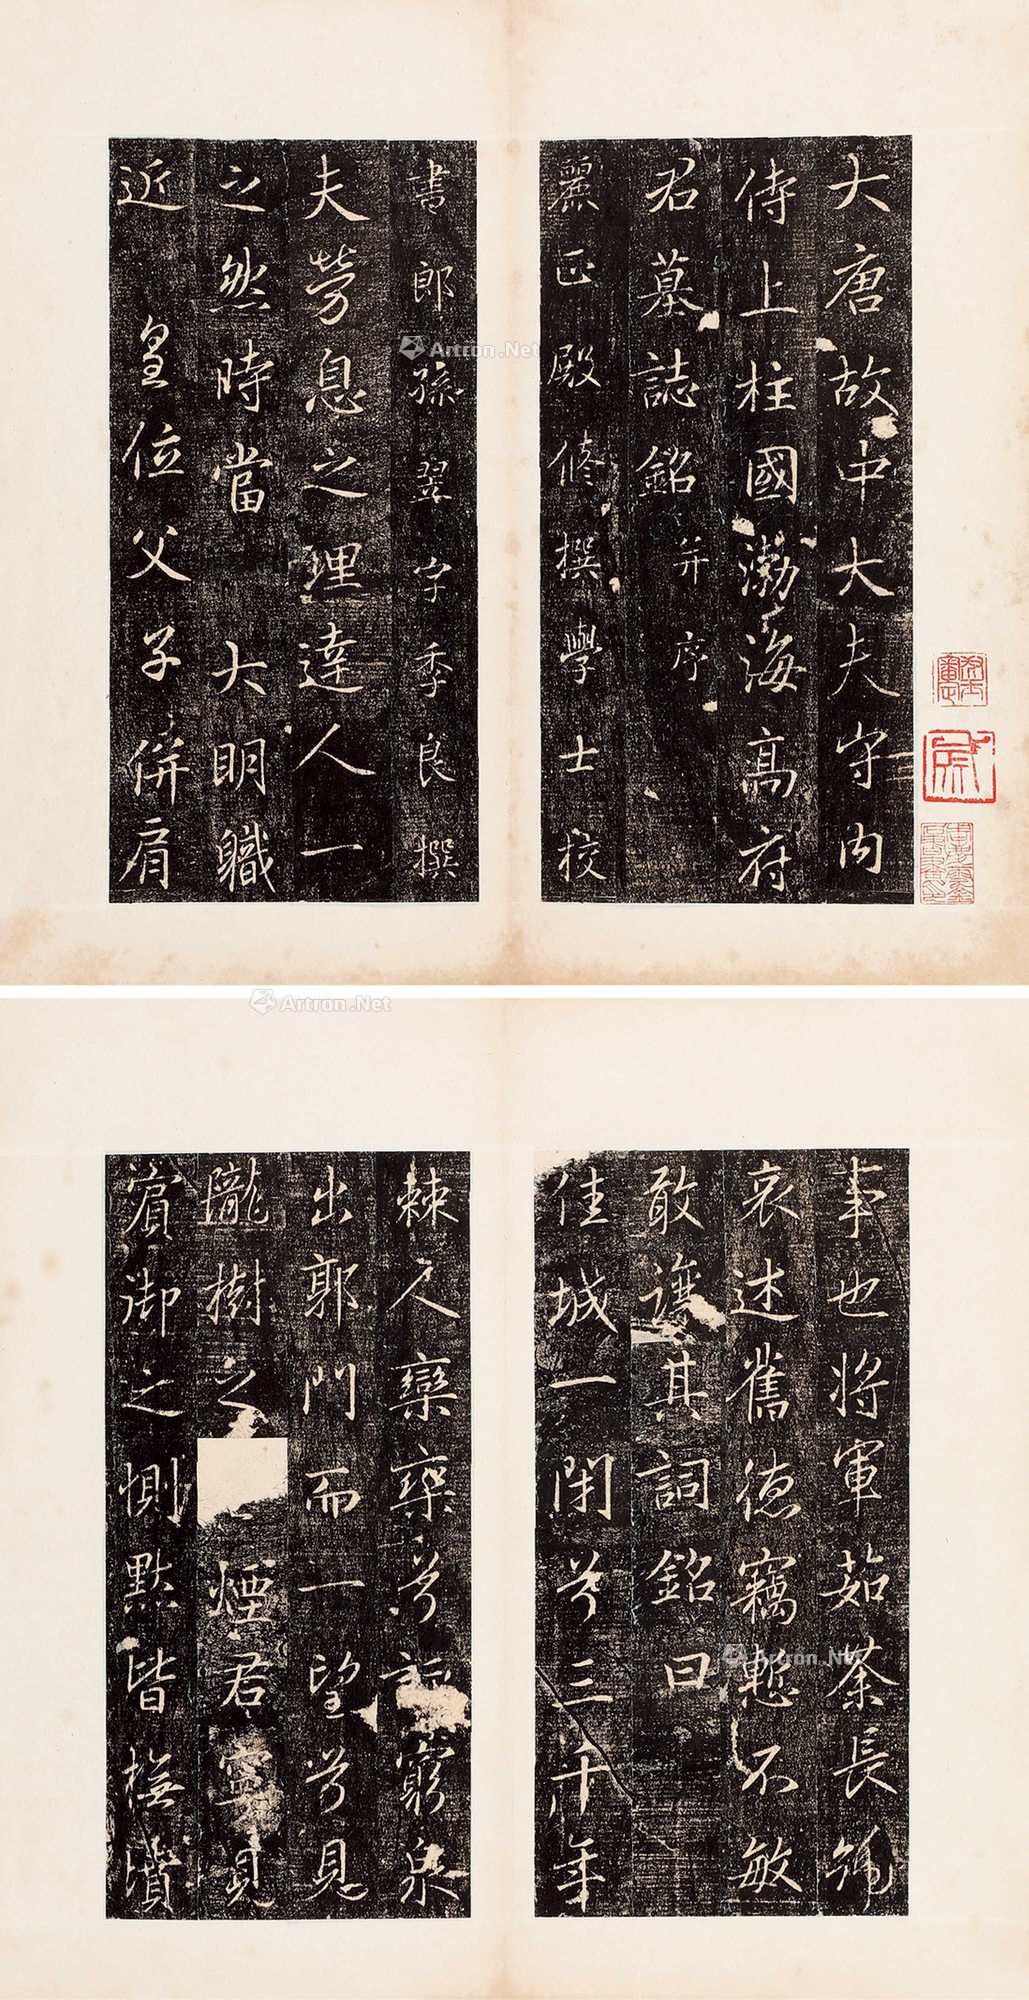 大唐故中大夫守內
侍上柱國渤海高府
君墓誌銘并序
麗正殿修撰學士校
書郎孫翌字季良撰
夫勞息之理達人一
之然時當大明職
近皇位父子併肩
Artron.Net
Artron.Net
事也將軍茹荼長號
哀述舊德竊慙不敏
敢讓其詞銘曰
佳城一閉兮三千年
棘人欒欒兮訴窮泉
出郭門而一望兮見
隴樹之煙君寧見
賓御之惻默皆撫墳
Artron.Net